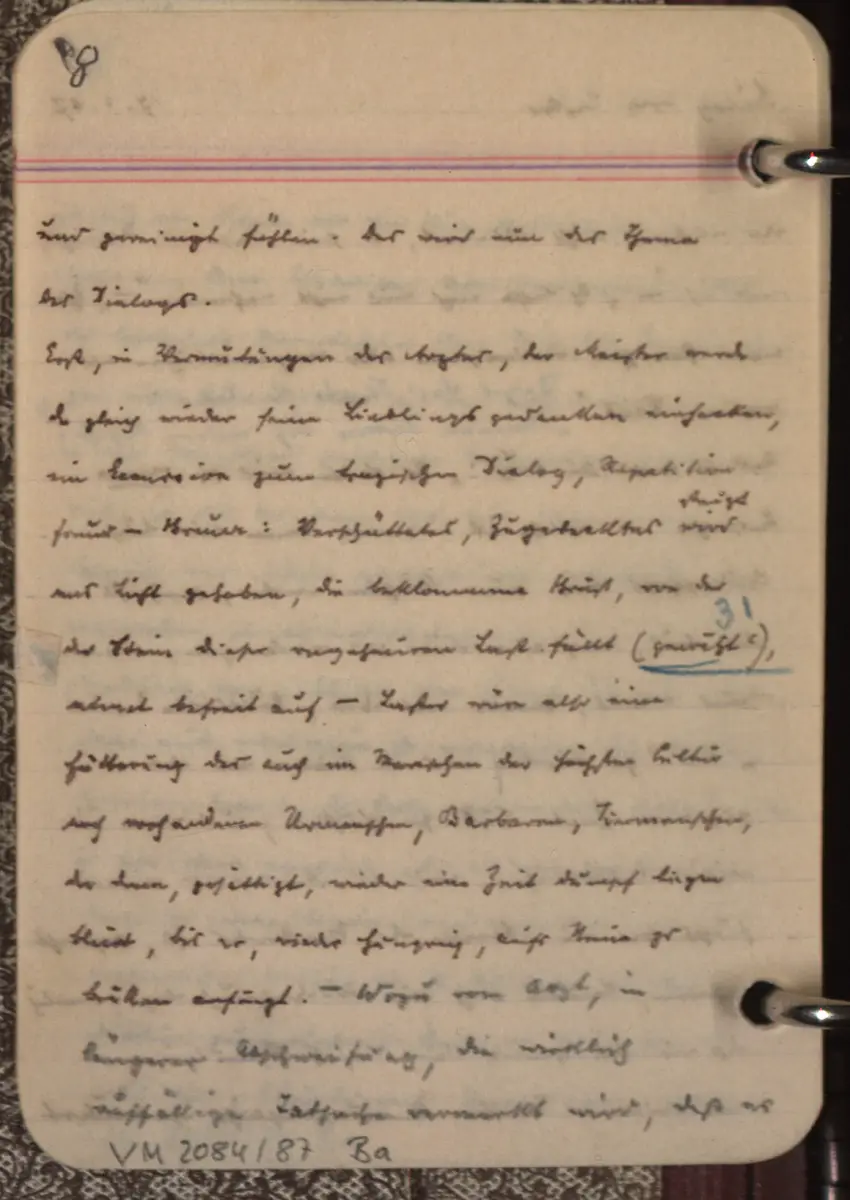 8
und gereinigt fühlen. Das wird nun das Thema
des Dialogs.
Erst, in Vermutungen des Arztes, der Meister werde
da gleich wieder seine Lieblingsgedanken einhaken,
ein Excursion zum tragischen Dialog, Repetition
steigt
Freud – Breuer: Verschüttetes, Zugedecktes wird
ans Licht gehoben, die beklommene Brust, von der
31
der Stein dieser ungeheuren Last fällt (gewälzt),
atmet befreit auf – Laster wäre also eine
Fütterung des auch im Menschen der höchsten Cultur
noch vorhandenen Urmenschen, Barbaren, Tiermenschen,
der dann, gesättigt, wieder eine Zeit dumpf liegen
bleibt, bis er, wieder hungrig, aufs Neue zu
brüllen anfängt. – Wozu vom Arzt, in
längerer Abschweifung, die wirklich
auffällige Tatsache vermerkt wird, daß es
VM 2084/87 Ba